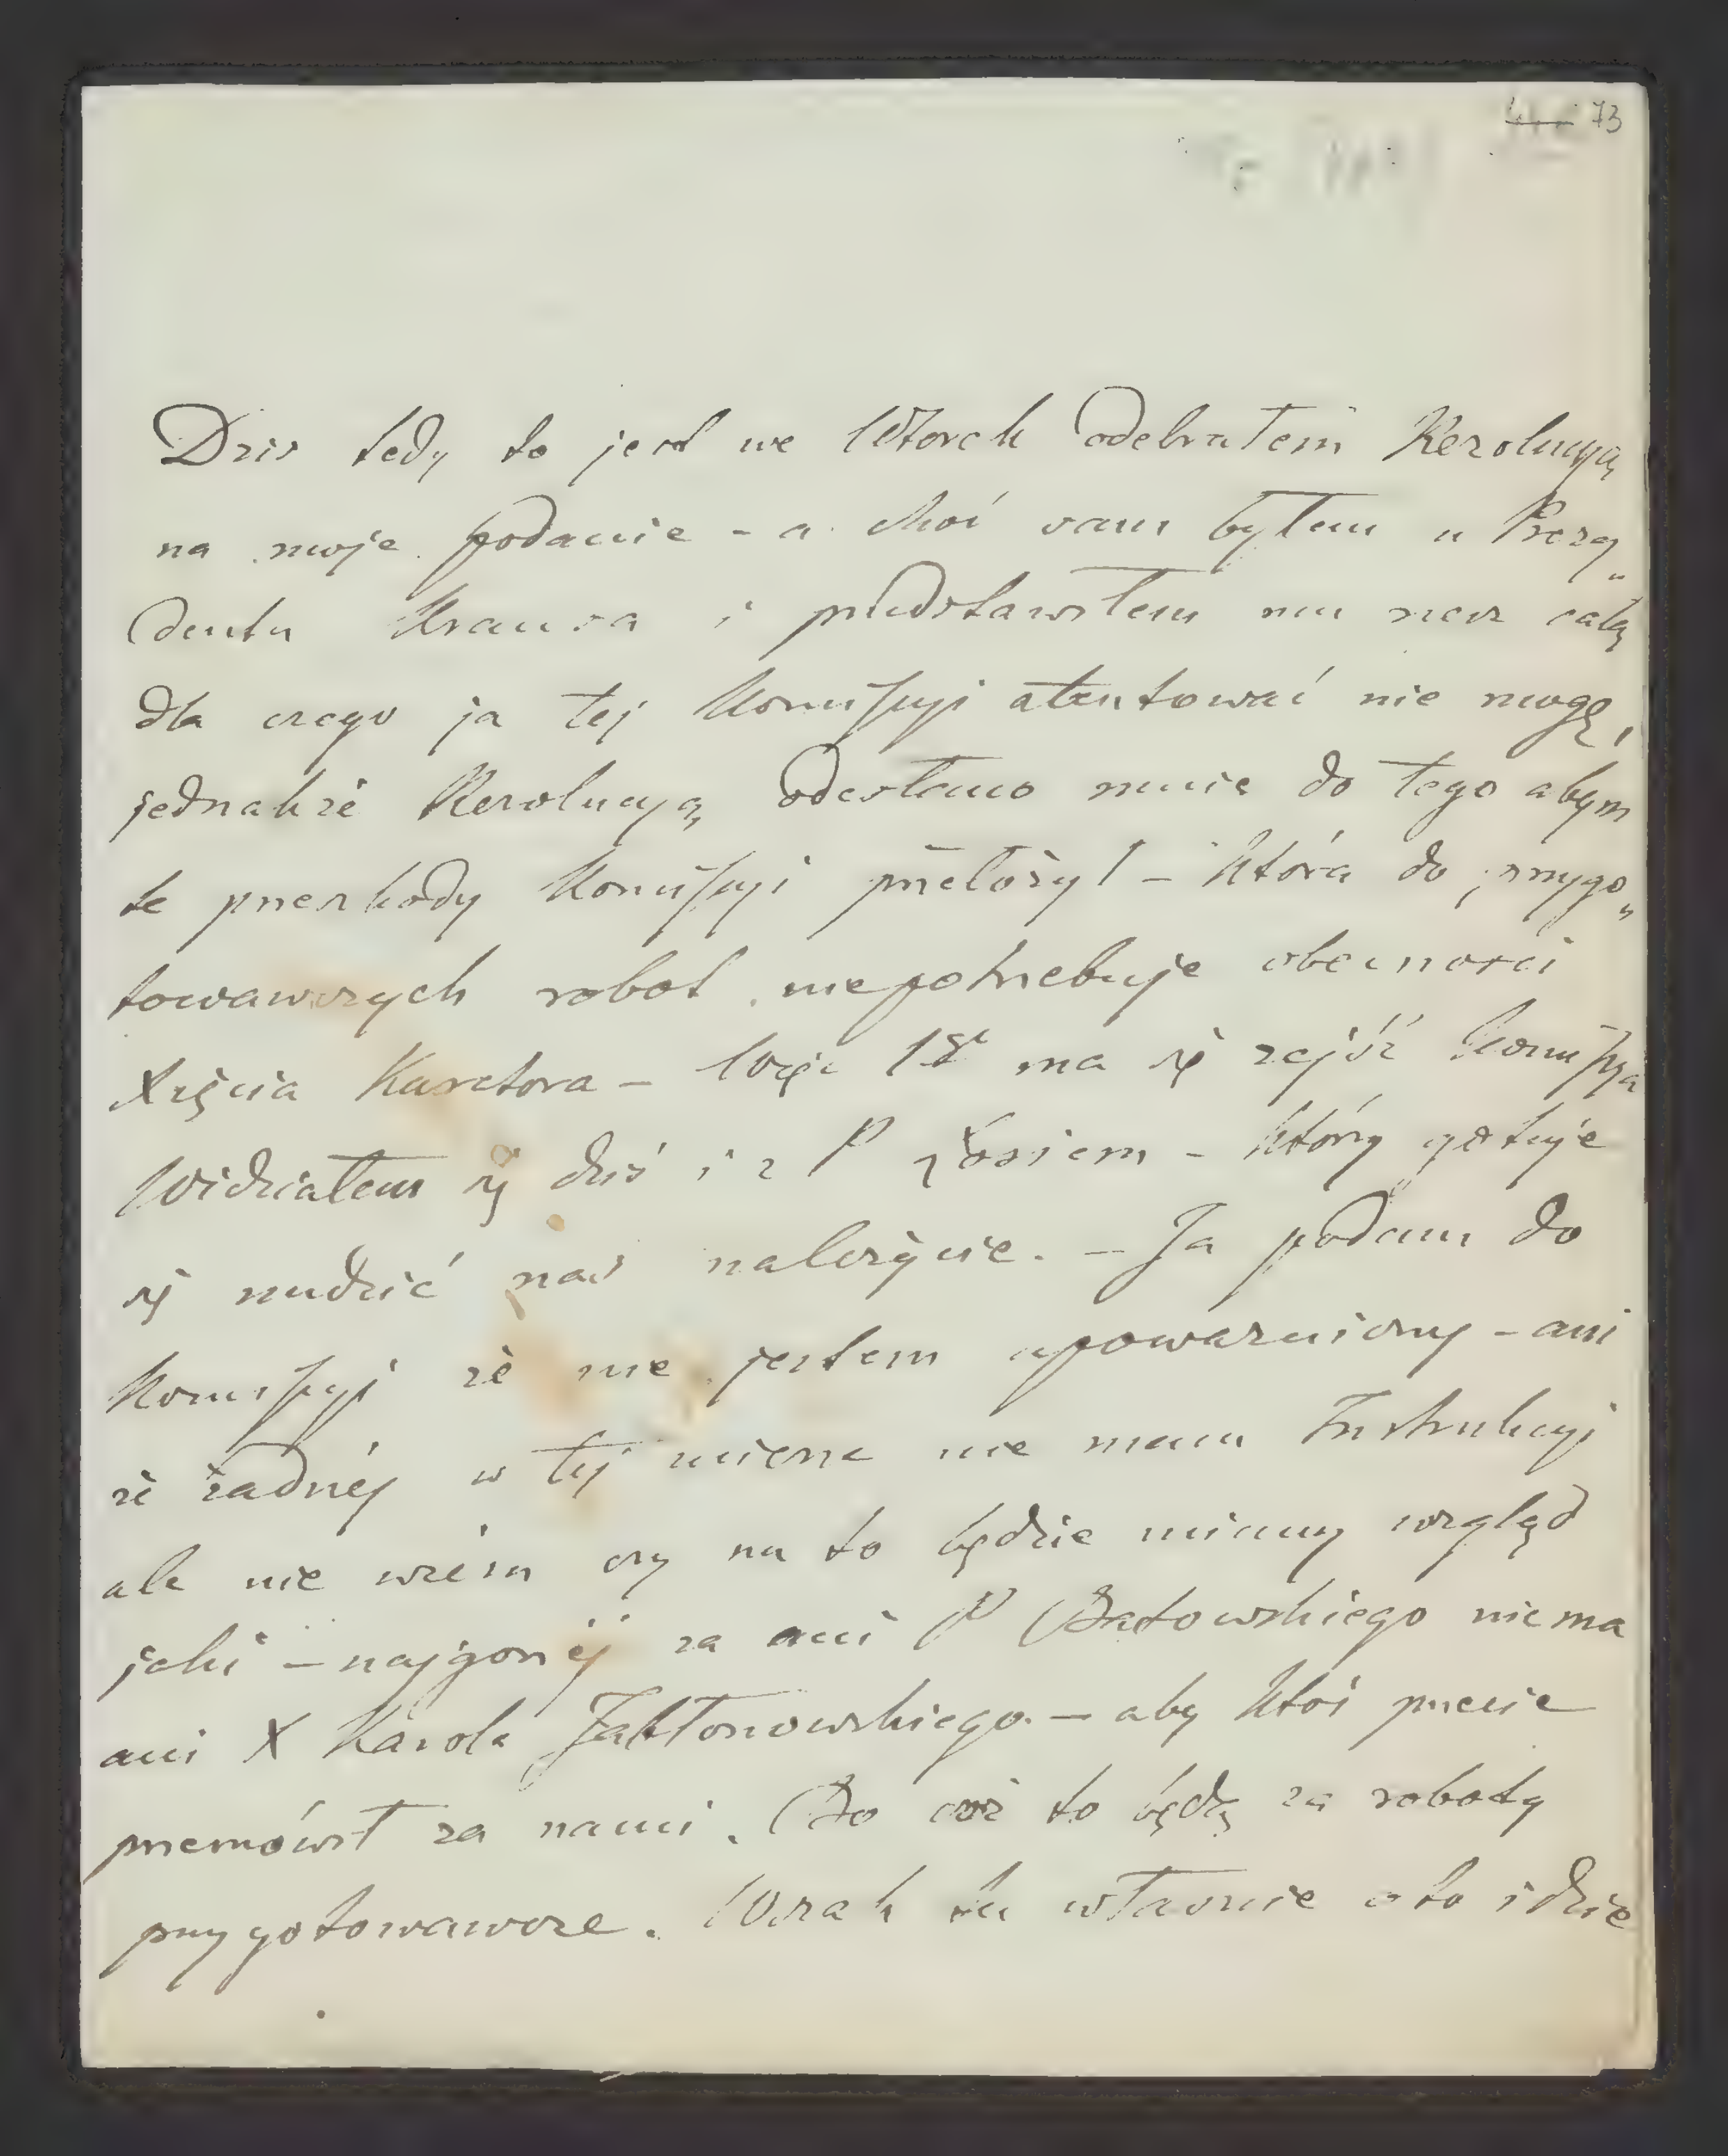 73
Dziś tedy to jest we Wtorek odebrałem Rezolucyą
na moje podanie - a choć sam byłem u Prezy„
denta Krausa i przedstawiłem mu rzecz całą
dla czego ja tej Komissyi atentować nie mogę,
jednakże Rezolucyą odesłano mnie do tego abym
te przeszkody Komissyi przełożył - która do przygo„
towawczych robot niepotrzebuje obecności
Xięcia Kuratora - Więc 18t ma się zejść Komissya
Widziałem się dziś i z P Łosiem - który gotuje
się nudzić nas należycie. - Ja podam do
Komissyi że nie jestem upoważniony - ani
że żadnéj w téj mierze nie mam Instrukcyi
ale nie wiém czy na to będzie miany wzgląd
jaki - najgorzéj za ani P Batowskiego niema
ani X Karola Jabłonowskiego. - aby ktoś przecie
przemówił za nami. Bo cóż to będą za roboty
przygotowawcze. Wszak tu właśnie o to idzie